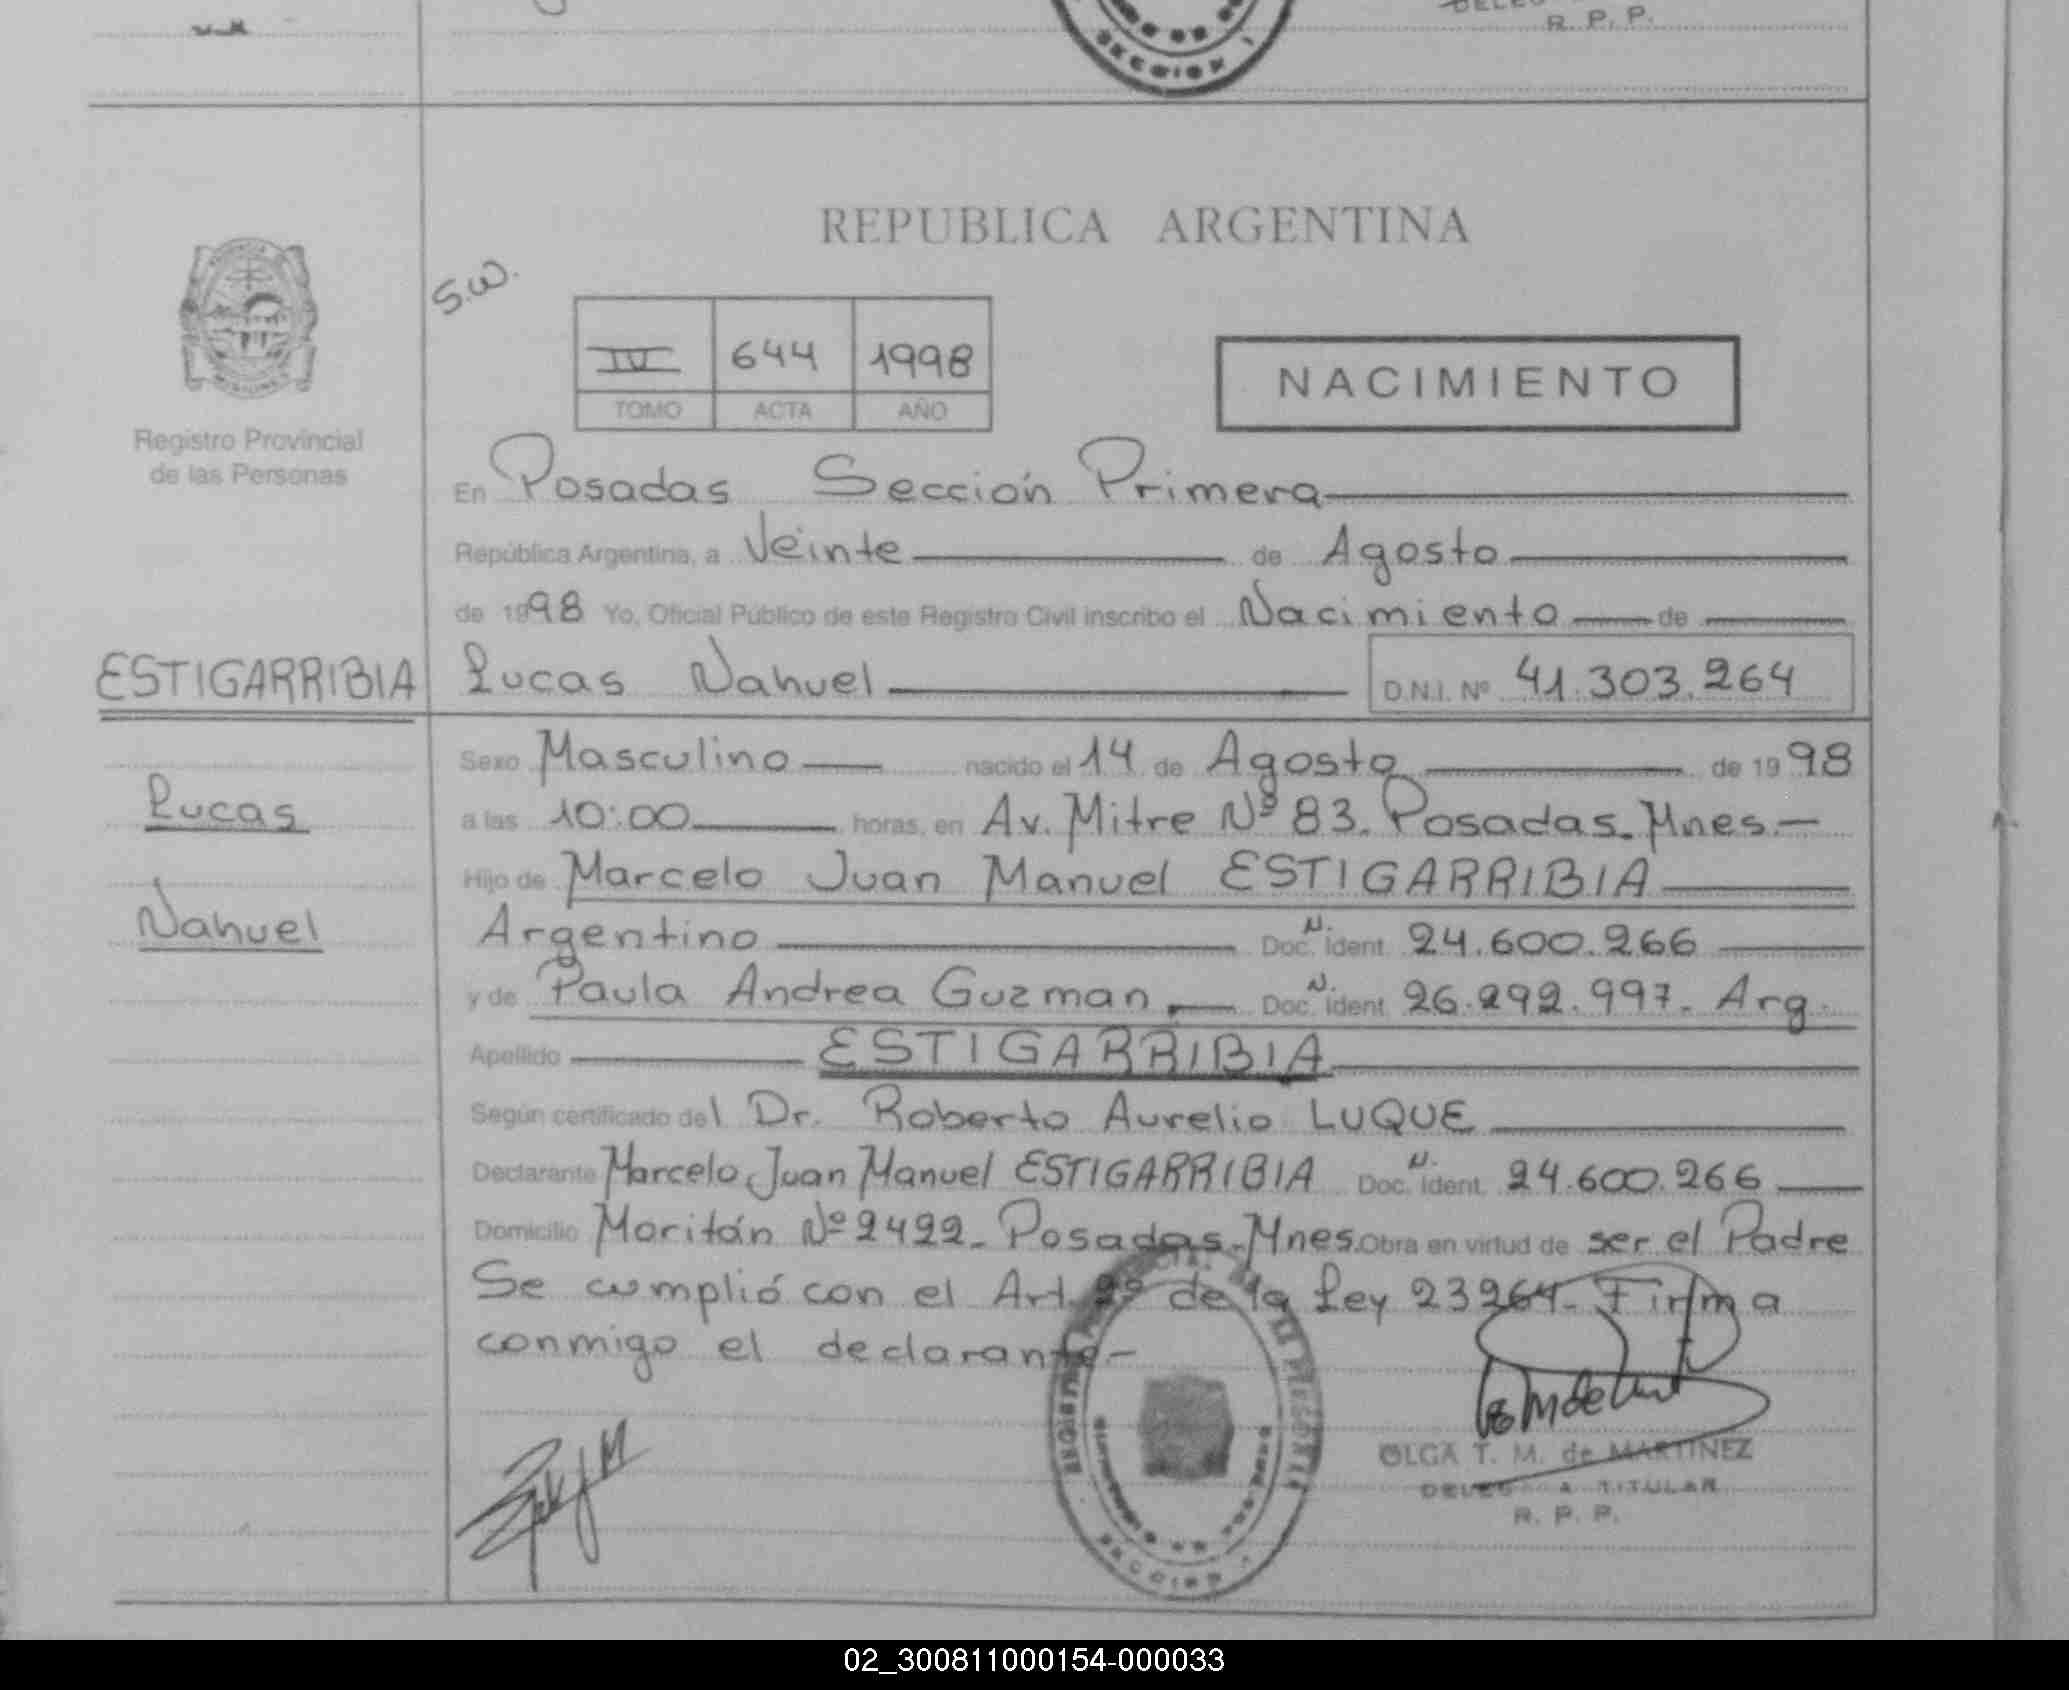 R. P. P.
SECCION 1
REPUBLICA ARGENTINA
S.W.
IV 644 1998
TOMO ACTA AÑO
NACIMIENTO
Registro Provincial
de las Personas
En Posadas Sección Primera
República Argentina, a Veinte de Agosto
de 1998 Yo, Oficial Público de este Registro Civil inscribo el Nacimiento de
ESTIGARRIBIA Lucas Nahuel D.N.I. Nº 41.303.264
Sexo Masculino nacido el 14 de Agosto de 1998
Lucas
a las 10:00 horas, en Av. Mitre Nº 83. Posadas. Mnes.-
Hijo de Marcelo Juan Manuel ESTIGARRIBIA
Nahuel
Argentino Doc. N. Ident. 24.600.266
y de Paula Andrea Guzman, Doc. N. Ident. 26.292.997. Arg.
Apellido ESTIGARRIBIA
Según certificado del Dr. Roberto Aurelio LUQUE
Declarante Marcelo Juan Manuel ESTIGARRIBIA Doc. N. Ident. 24.600.266
Domicilio Moritán Nº 2422. Posadas. Mnes. Obra en virtud de ser el Padre
Se cumplió con el Art. 2º de la Ley 23264. Firma
conmigo el declarante-
OLGA T. M. de MARTINEZ
DELEGADA TITULAR
R. P. P.
SECCION 1
02_300811000154-000033